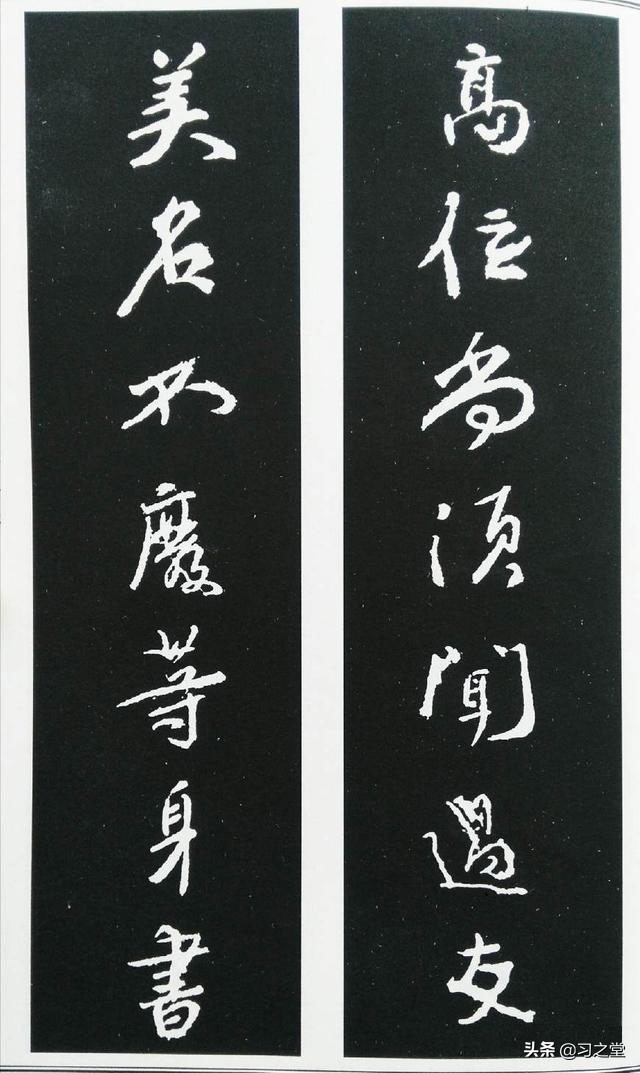 高位尚須聞過友
美名不廢等身書
头条 @习之堂